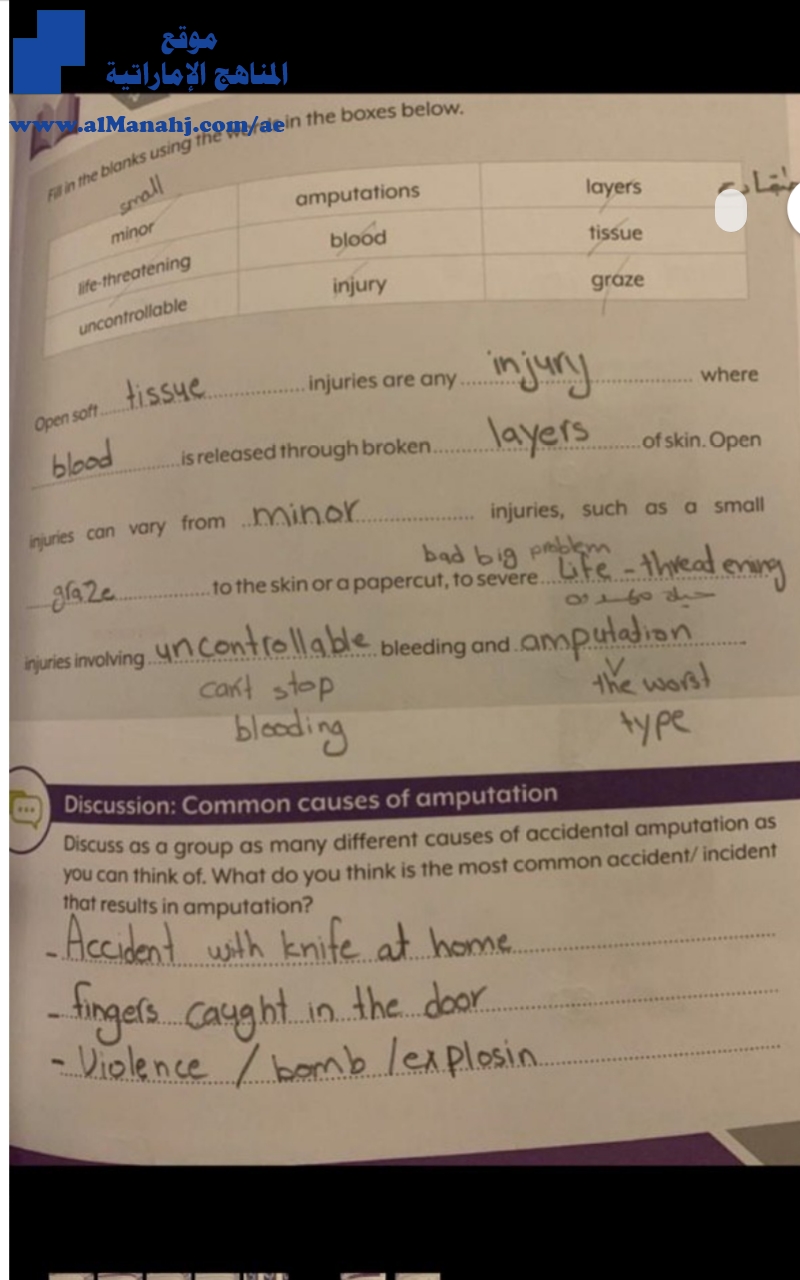 موقع
المناهج الإماراتية
www.alManahj.com/ae
Fill in the blanks using the words in the boxes below.
small
minor amputations layers
life-threatening blood tissue
uncontrollable injury graze
Open soft tissue injuries are any injury where
blood is released through broken layers of skin. Open
injuries can vary from minor injuries, such as a small
bad big problem
graze to the skin or a papercut, to severe Life - threadening
injuries involving uncontrollable bleeding and amputation
can't stop the worst
bleeding type
Discussion: Common causes of amputation
Discuss as a group as many different causes of accidental amputation as
you can think of. What do you think is the most common accident/ incident
that results in amputation?
- Accident with knife at home
- fingers caught in the door
- Violence / bomb / explosin